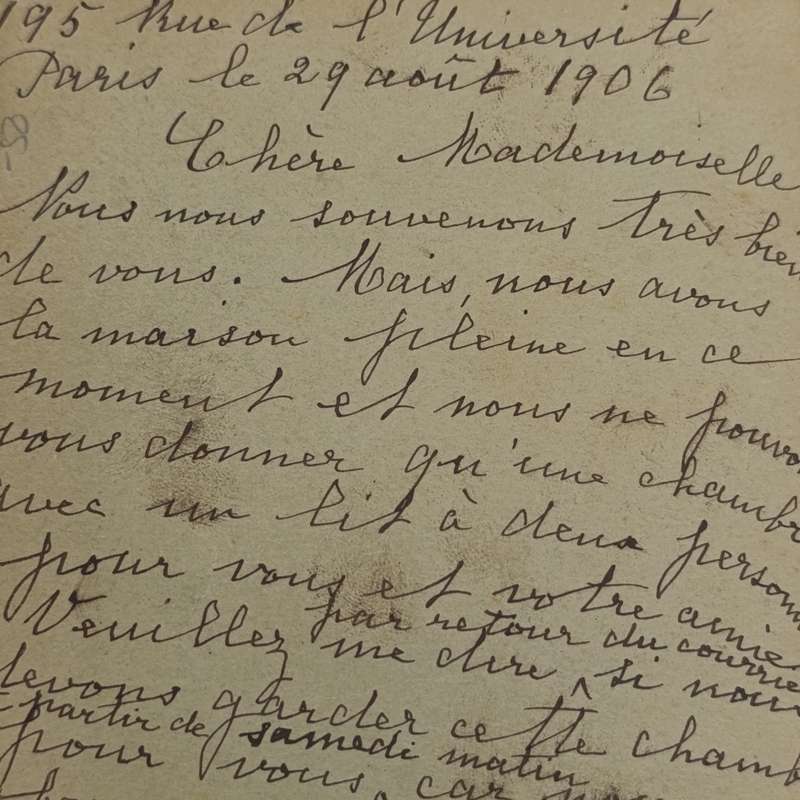 195 Rue de l'Université
Paris le 29 août 1906
Chère Mademoiselle
Nous nous souvenons très bien
de vous. Mais, nous avons
la maison pleine en ce
moment et nous ne pouvo
vous donner qu'une chambr
avec un lit à deux person
pour vous et votre amie
par retour du courrie
Veuillez me dire si nous
devons garder cette chamb
à partir de samedi matin
pour vous, car